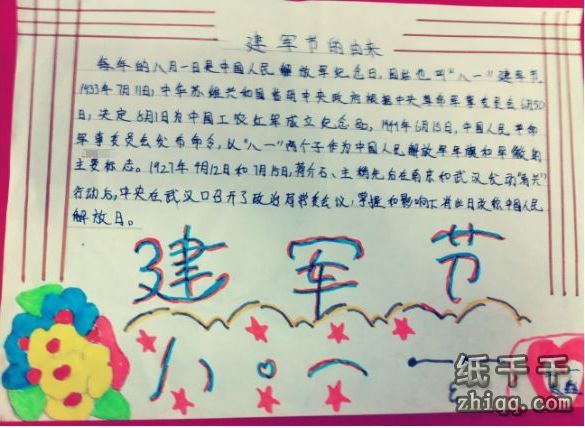 建军节的由来
每年的八月一日是中国人民解放军纪念日,因此也叫“八一”建军节
1933年7月11日,中华苏维共和国临时中央政府根据中央革命军事委员会6月30
日,决定8月1日为中国工农红军成立纪念日。1949年6月15日,中国人民革命
军事委员会发布命令,以“八一”两个字作为中国人民解放军军旗和军徽的
主要标志。1927年4月12日和7月15日,蒋介石、主精先后在南京和武汉发动
行动后,中央在武汉口召开了政治局
解放日。
建军节
八 一
纸千千
zhiqq.com